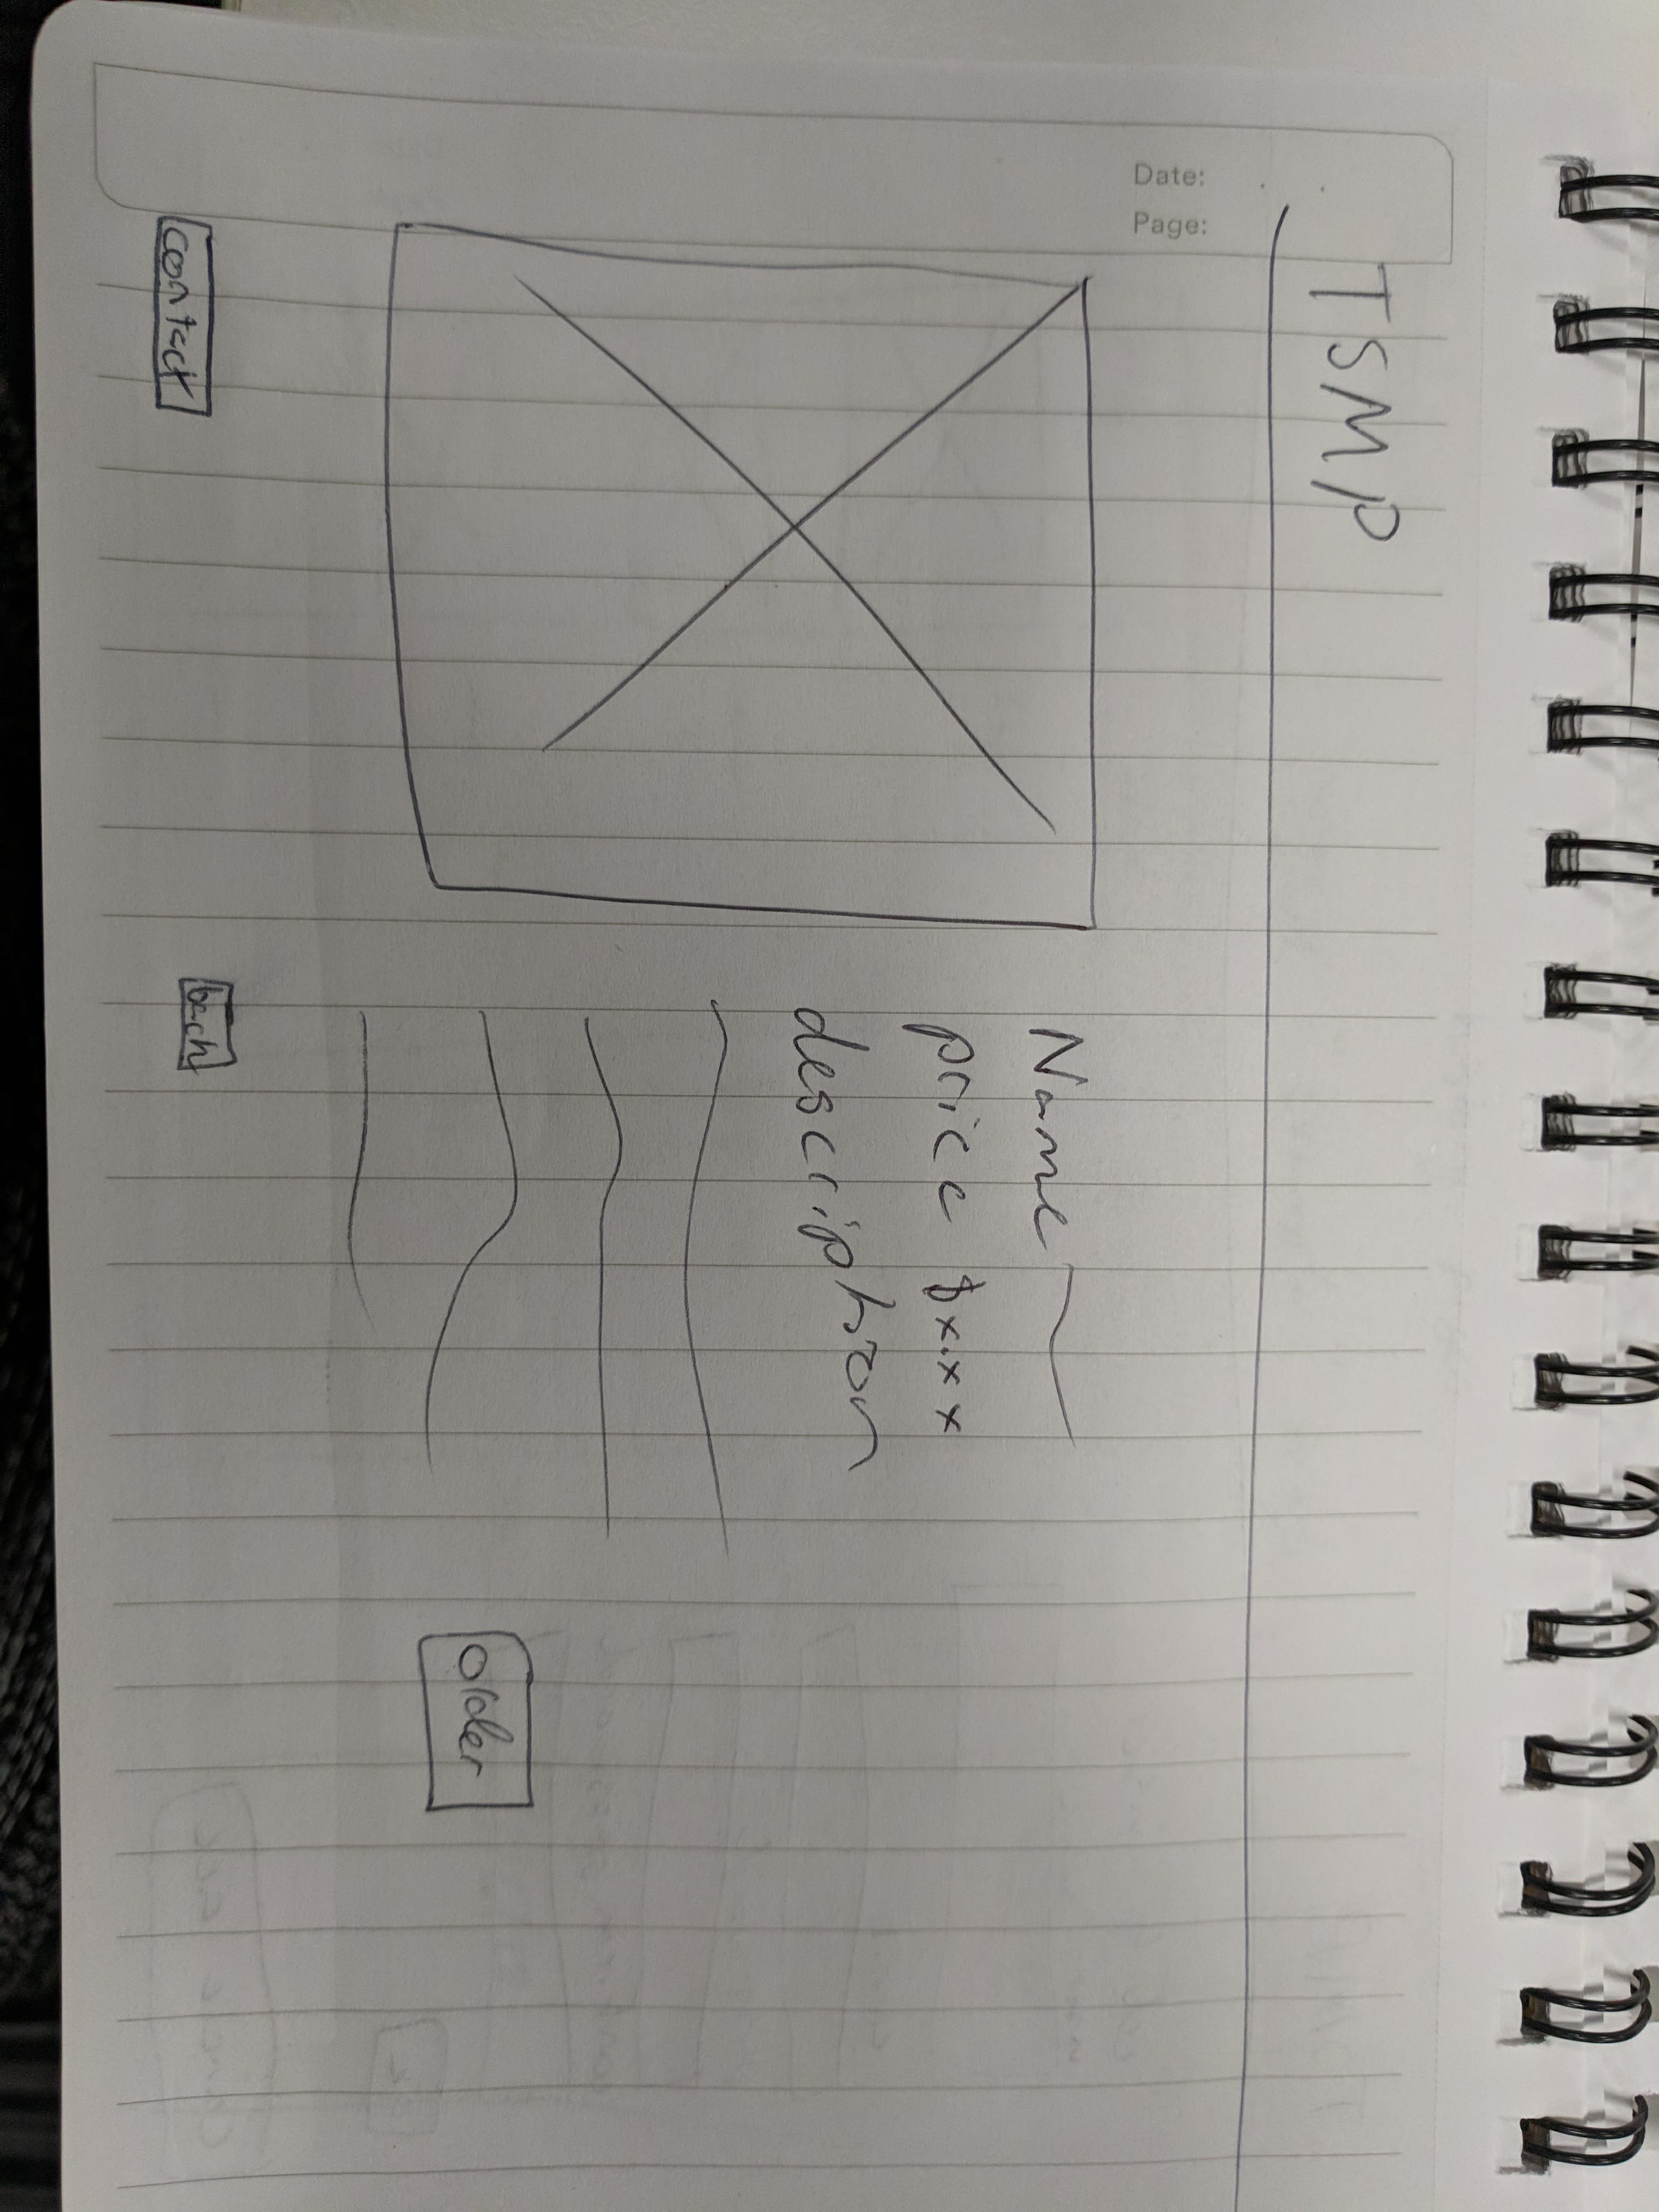 Date:
Page:
TSMP
Name
price $x.xx
description
Older
contact
back